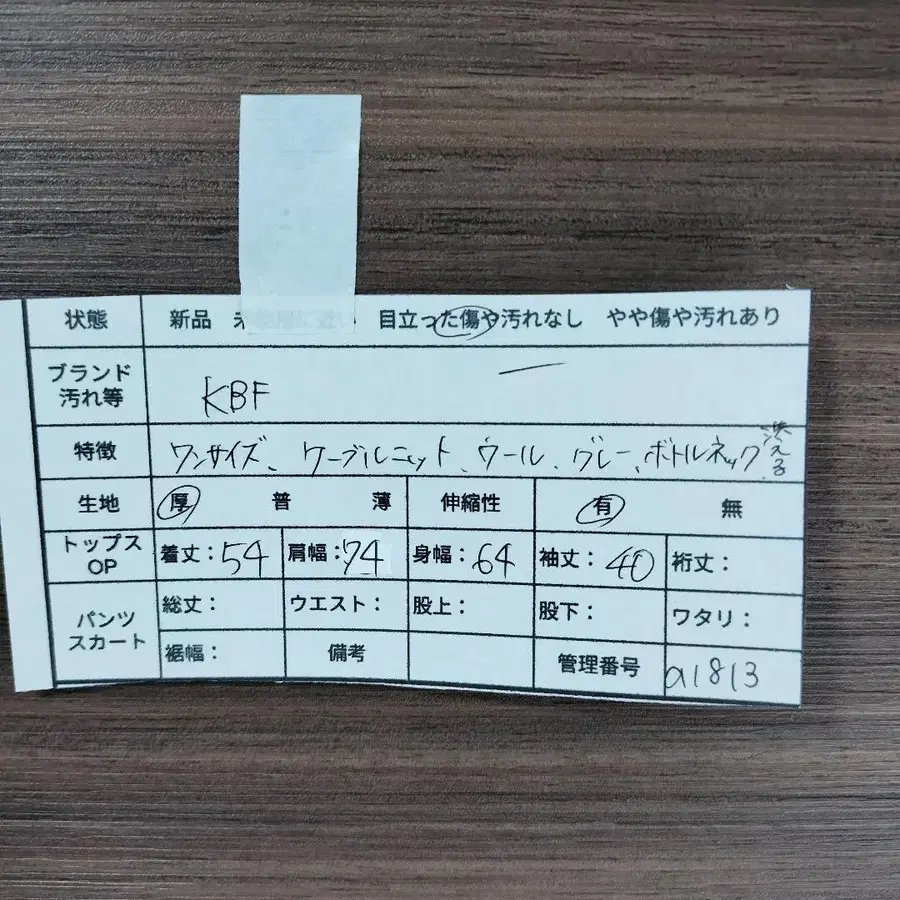 状態 新品 未使用に近い 目立った傷や汚れなし やや傷や汚れあり
ブランド
汚れ等 KBF
特徴 ワンサイズ、ケーブルニット、ウール、グレー、ボトルネック 洗える
生地 厚 普 薄 伸縮性 有 無
トップス
OP 着丈:54 肩幅:74 身幅:64 袖丈:40 裄丈:
パンツ
スカート 総丈: ウエスト: 股上: 股下: ワタリ:
裾幅: 備考 管理番号 a1813